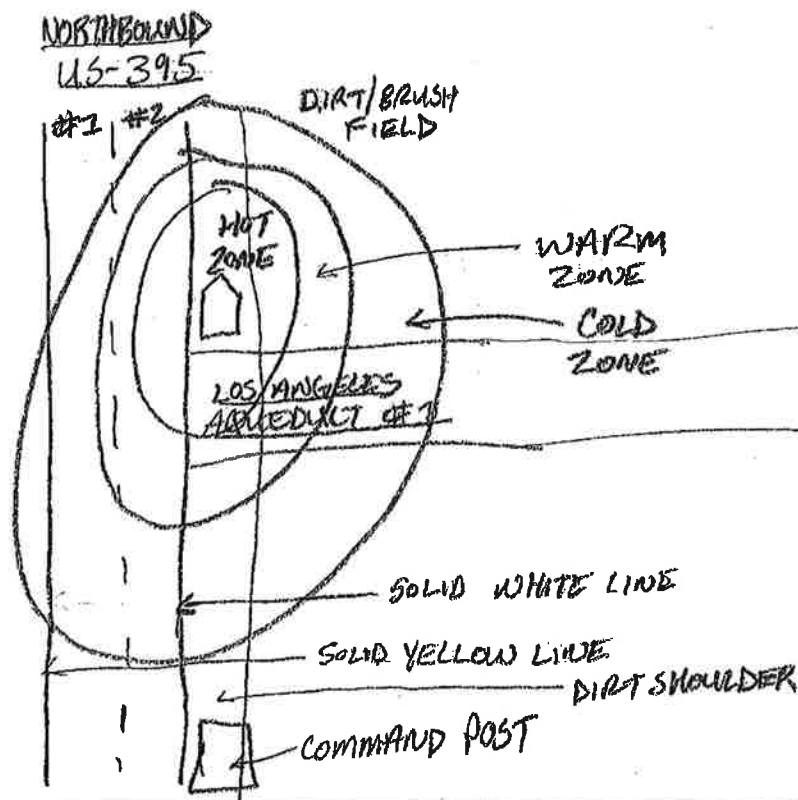 NORTHBOUND
US-395
#1 #2
DIRT/BRUSH
FIELD
HOT
ZONE
WARM
ZONE
COLD
ZONE
LOS ANGELES
AQUEDUCT #1
SOLID WHITE LINE
SOLID YELLOW LINE
DIRT SHOULDER
COMMAND POST